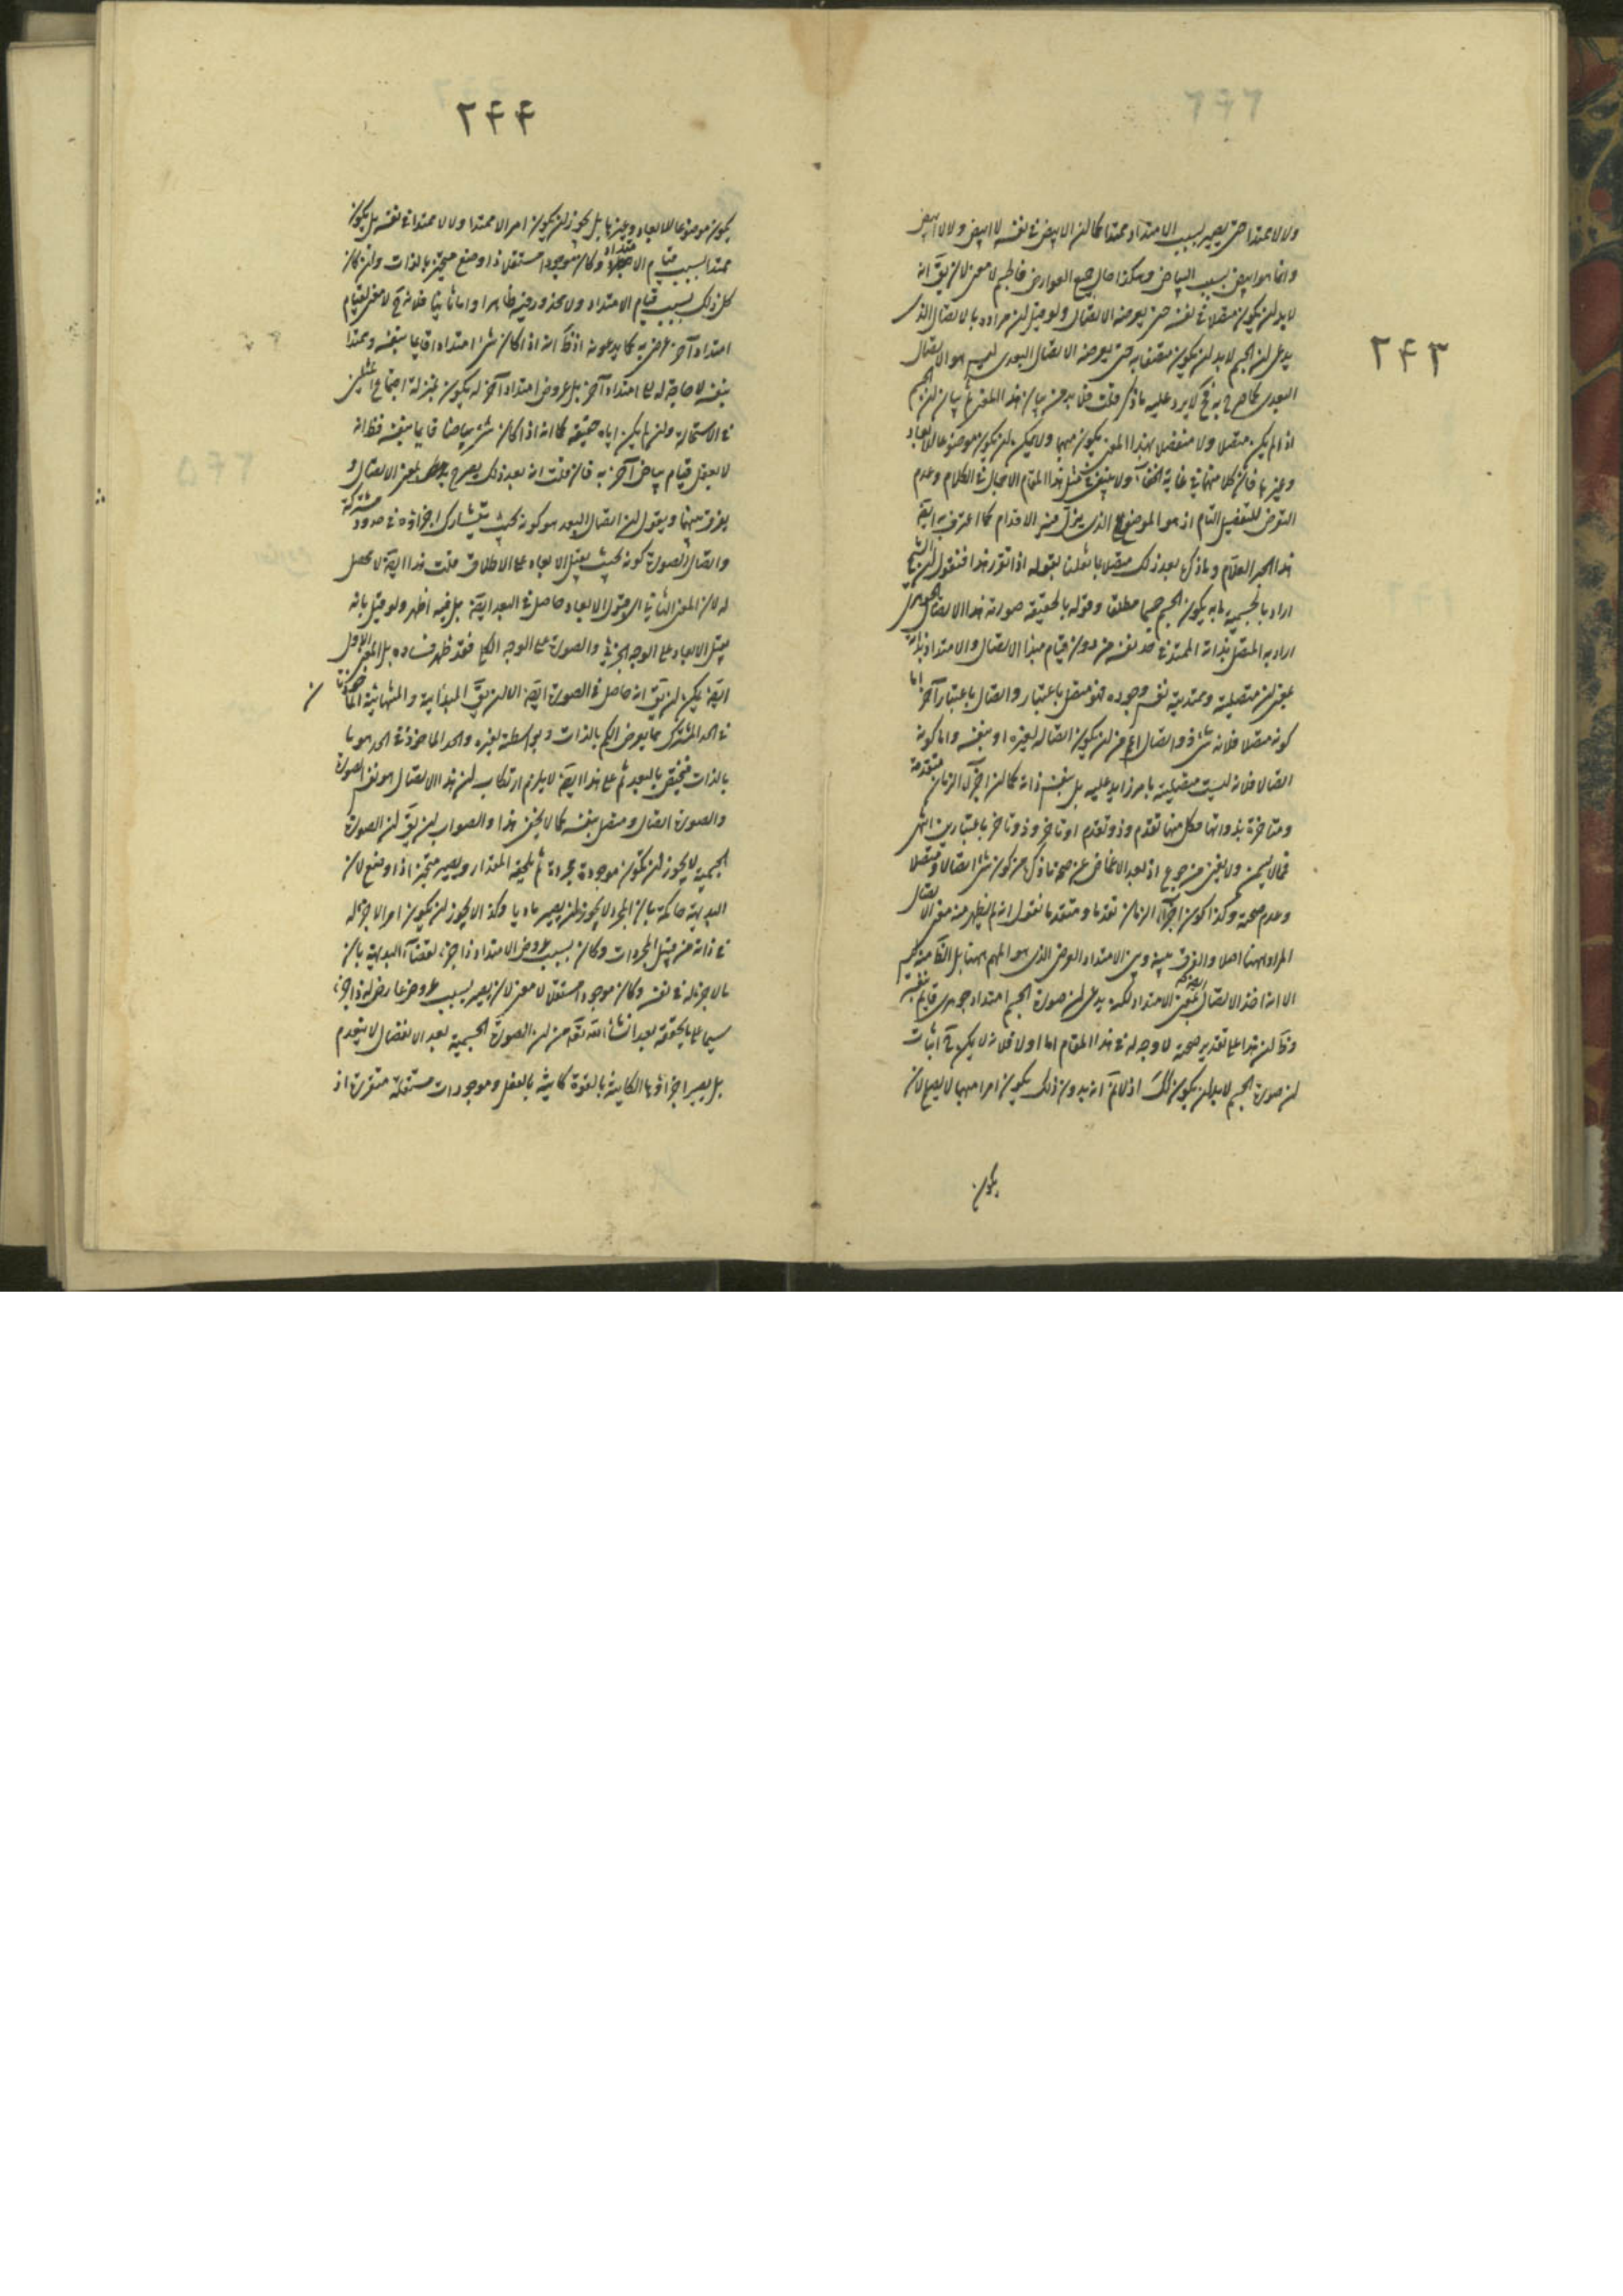 ۲۴۳
ولا لا ممتدا حتى يصير بسبب الامتداد ممتدا كما ان الابيض في نفسه لا ابيض ولا لا ابيض
وانما هو ابيض بسبب البياض وهكذا حال جميع العوارض فاطبهم لا معنى لان يق انه
لا بد ان يكون متصلا في نفسه حتى يعرضه الاتصال ولو قيل ان مراده بالاتصال الذى
يدعى ان الجسم لا بد ان يكون متصفا به حتى يعرضه الاتصال البعدى ليس هو الاتصال
البعدى كما صرح به فح لا يرد عليه ما ذكر قلت فلا بد من بيان هذا المعنى ثم بيان ان الجسم
اذا لم يكن متصلا ولا منفصلا بهذا المعنى يكون مبهما ولا يمكن ان يكون موضوعا للابعاد
وغيرها فان كلا منهما في غاية الخفآء ولا ينبغى في مثل هذا المقام الاجمال في الكلام وعدم
التعرض للتفصيل التام اذ هو الموضع الذى يزل فيه الاقدام كما اعترف به ايضا
هذا الحبر العلام وما ذكر بعد ذلك متصلا بما نقلنا بقوله اذا تقرر هذا فنقول ان الشيخ
اراد بالجسمية ما به يكون الجسم جسما مطلقا وقوله بالحقيقة صورته هذا الاتصال الجوهرى
اراد به المتصل بذاته الممتد في حد نفسه من دون قيام مبدا الاتصال والامتداد بذاته
بمعنى ان متصليته وممتديته نفس وجوده فهو متصل باعتبار واتصال باعتبار آخر اما
كونه متصلا فلانه شئ ذو اتصال اعم من ان يكون اتصاله لغيره او بنفسه واما كونه
اتصالا فلانه ليست متصليته بامر زايد عليه بل بنفس ذاته كما ان اجزآء الزمان متقدمة
ومتاخرة بذواتها فكل منها تقدم وذو تقدم او تاخر وذو تاخر باعتبارين انتهى
فما لا يسمن ولا يغنى من جوع اذ بعد الاغماض عن صحة ما ذكره من كون شئ اتصالا ومتصلا
وعدم صحته وكذا كون اجزآء الزمان تقدما ومتقدما نقول انه لم يظهر منه معنى الاتصال
المراد ههنا اصلا والفرق بينه وبين الامتداد العرضى الذى هو المهم ههنا بل الظ من كلامه
الا انه اخذ الاتصال بمعنى الامتداد لكنه يدعى ان صورة الجسم امتداد جوهرى قايم بنفسه
وظ ان هذا على تقدير صحته لا وجه له في هذا المقام اما اولا فلانه لا يمكن ح اثبات
ان صورة الجسم لا بد ان يكون كك اذ لا نم انه بدون ذلك يكون امرا مبهما لا يصح لان
يكون
۲۴۴
يكون موضوعا للابعاد وغيرها بل يجوز ان يكون امرا لا ممتدا ولا لا ممتدا في نفسه بل يكون
ممتدا بسبب قيام الامتداد وكان موجودا مستقلا ذا وضع متحيز بالذات وان كان
كل ذلك بسبب قيام الامتداد ولا محذور فيه ظاهرا واما ثانيا فلانه ح لا معنى لقيام
امتداد آخر عرضى به كما يدعونه اذ ظ انه اذا كان شئ امتدادا قايما بنفسه وممتدا
بنفسه لا حاجة له الى امتداد آخر بل عروض امتداد آخر له يكون بمنزلة اجتماع المثلين
في الاستحالة وان لم يكن اياه حقيقة كما انه اذا كان شئ بياضا قايما بنفسه فظ انه
لا يعقل قيام بياض آخر به فان قلت انه بعد ذلك يصرح بمعنى الاتصال و
يفرق بينهما ويقول ان اتصال البعد هو كونه بحيث يتشارك اجزاؤه في حدود مشتركة
واتصال الصورة كونه بحيث يقبل الابعاد على الاطلاق قلت هذا ايضا لا محصل
له لان المعنى الثاني اى قبول الابعاد حاصل في البعد ايضا بل فيه اظهر ولو قيل بانه
يقبل الابعاد على الوجه الجزئى والصورة على الوجه الكلى فقد ظهر فساده بل المعنى الاول
ايضا يمكن ان يق انه حاصل في الصورة ايضا الا ان يق المبدأية والمنتهائية الماخوذتان
في الحد المشترك مما يعرض الكم بالذات وبواسطته لغيره والحد الماخوذ في الحد هو ما
بالذات فيختص بالبعد ثم على هذا ايضا لا يلزم ارتكاب ان هذا الاتصال هو نفس الصورة
والصورة اتصال ومتصل بنفسه كما لا يخفى هذا والصواب ان يق ان الصورة
الجسمية لا يجوز ان تكون موجودة مجردة ثم يلحقه المقدار ويصير متحيزا ذا وضع لان
البديهة حاكمة بان المجرد لا يجوز ان يصير ماديا وكذا لا يجوز ان يكون امرا لا جزء له
في ذاته من قبيل المجردات وكان بسبب عروض الامتداد ذا جزء لقضآء البديهة بان
ما لا جزء له في نفسه وكان موجودا مستقلا لا معنى لان يصير بسبب عروض عارض له ذا جزء
سيما على ما يحققه بعد انشآء الله تعالى من ان الصورة الجسمية بعد الانفصال لا ينعدم
بل يصير اجزاؤها الكاينة بالقوة كاينة بالفعل وموجودات مستقلة متفرقة اذ